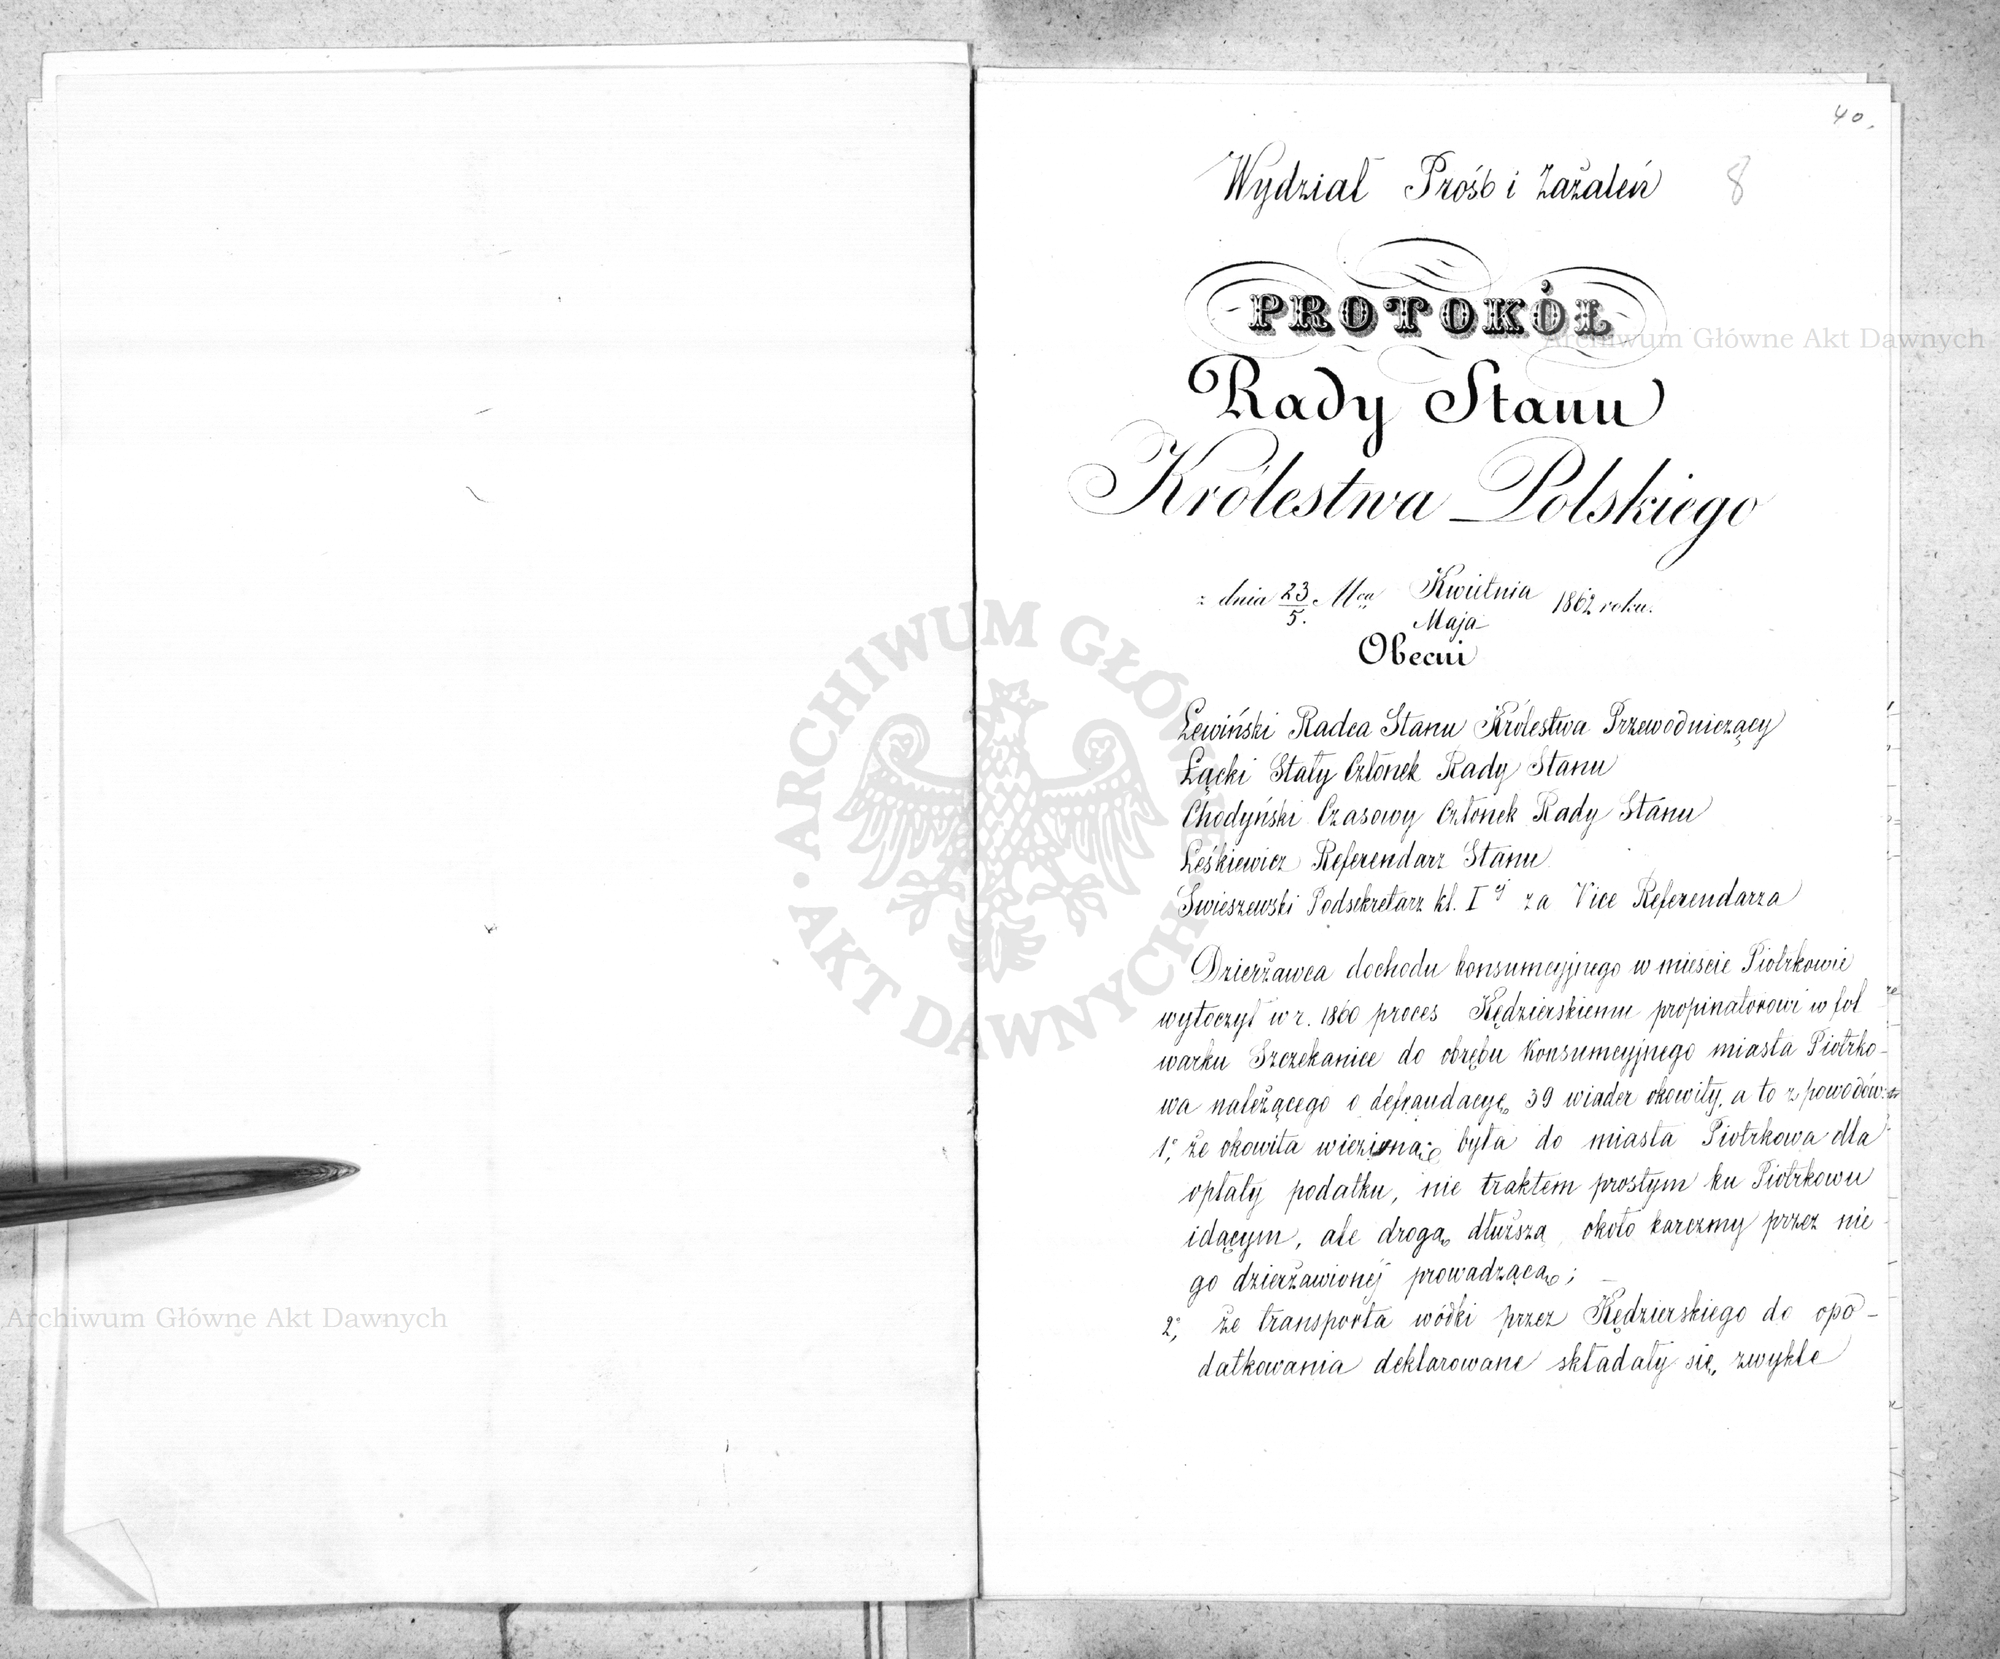 40.
Wydział Próśb i Zażaleń 8
PROTOKÓŁ
Rady Stanu
Królestwa Polskiego
z dnia 23/5. Mca Kwietnia/Maja 1862 roku.
Obecni
Lewiński Radca Stanu Królestwa Przewodniczący
Łącki Stały Członek Rady Stanu
Chodyński Czasowy Członek Rady Stanu
Leśkiewicz Referendarz Stanu
Swieszewski Podsekretarz kl. I ej za Vice Referendarza
Dzierżawca dochodu konsumcyjnego w mieście Piotrkowie
wytoczył w r. 1860 proces Kędzierskiemu propinatorowi w fol
warku Szczekanice do obrębu Konsumcyjnego miasta Piotrko-
wa należącego o defraudacyę 39 wiader okowity, a to z powodów:
1°, że okowita wieziona była do miasta Piotrkowa dla
opłaty podatku, nie traktem prostym ku Piotrkowu
idącym, ale drogą dłuższą około karczmy przez nie
go dzierżawionej prowadzącą;
2°, że transporta wódki przez Kędzierskiego do opo-
datkowania deklarowane składały się zwykle
Archiwum Główne Akt Dawnych
Archiwum Główne Akt Dawnych
ARCHIWUM GŁÓWNE • AKT DAWNYCH •